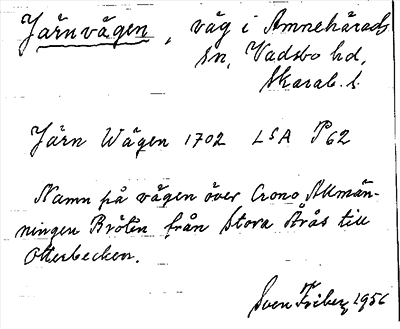 Järnvägen, väg i Amnehärads
sn, Vadsbo hd,
Skarab. l.
Järn Wägen 1702 LSA P62
Namn på vägen över Crono Allmän-
ningen Bråten från Stora Årås till
Otterbecken.
Sven Friberg 1956